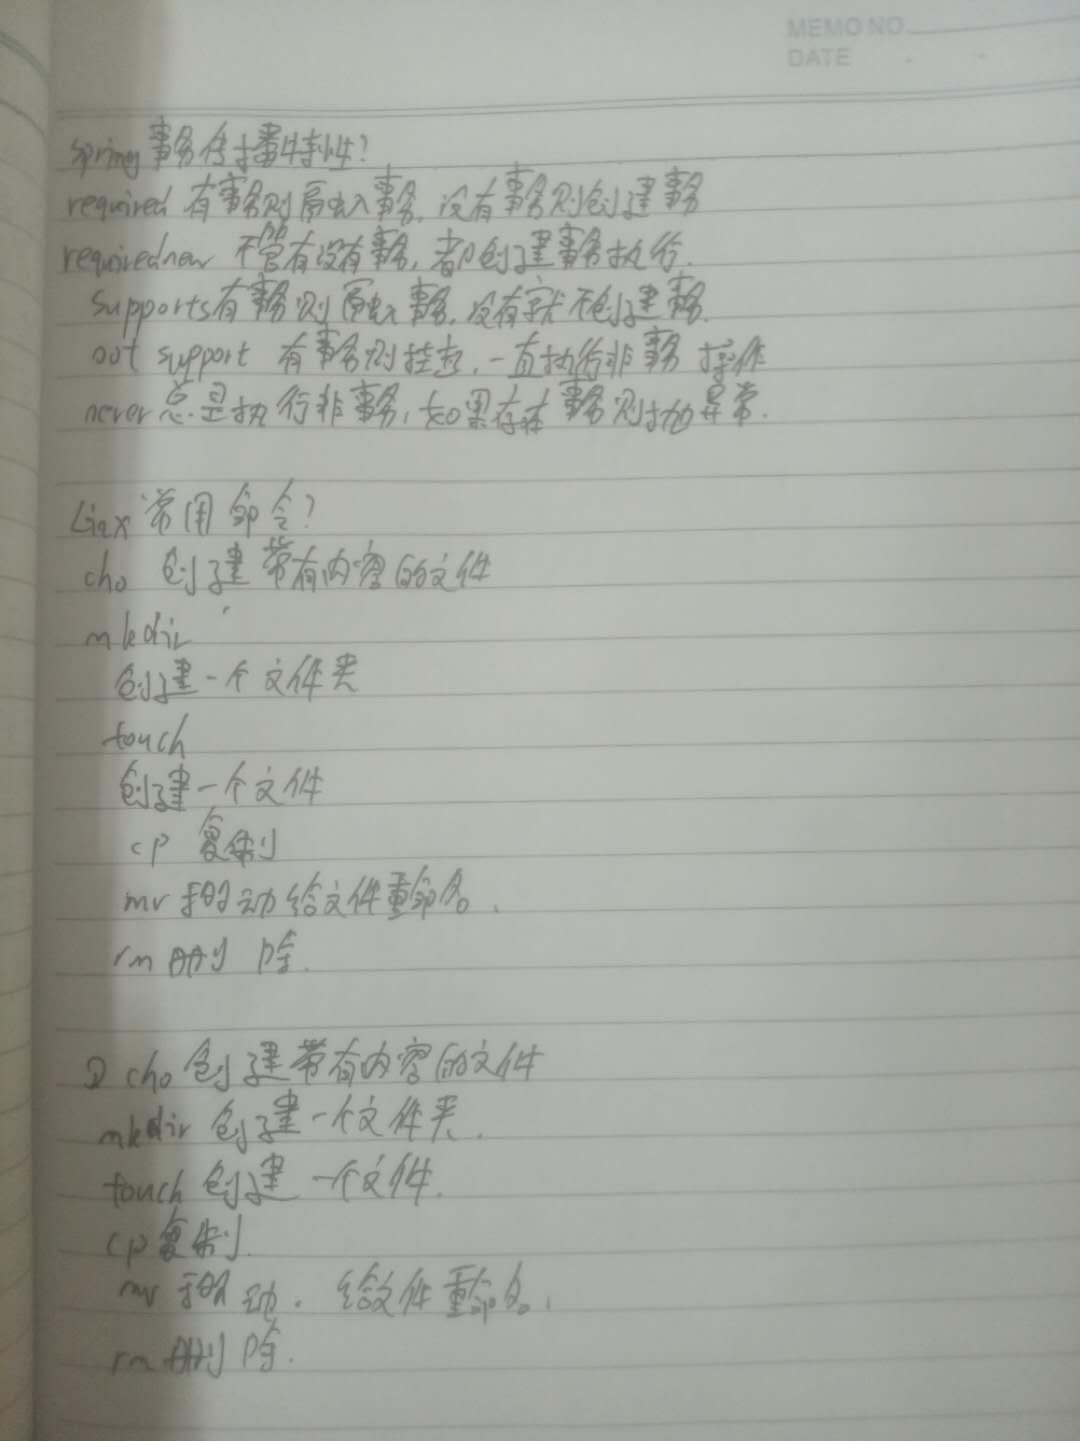 MEMO NO.
DATE
spring事务传播特性?
required 有事务则融入事务,没有事务则创建事务
requirednew 不管有没有事务,都创建事务执行.
supports有事务则融入事务,没有就不创建事务.
not support 有事务则挂起,一直执行非事务操作
never总是执行非事务,如果存在事务则抛异常.
Linx常用命令?
cho 创建带有内容的文件
mkdir
创建一个文件夹
touch
创建一个文件
cp 复制
mv 移动给文件重命名.
rm 删除.
cho 创建带有内容的文件
mkdir 创建一个文件夹.
touch 创建一个文件.
cp复制.
mv 移动.给文件重命名.
rm 删除.